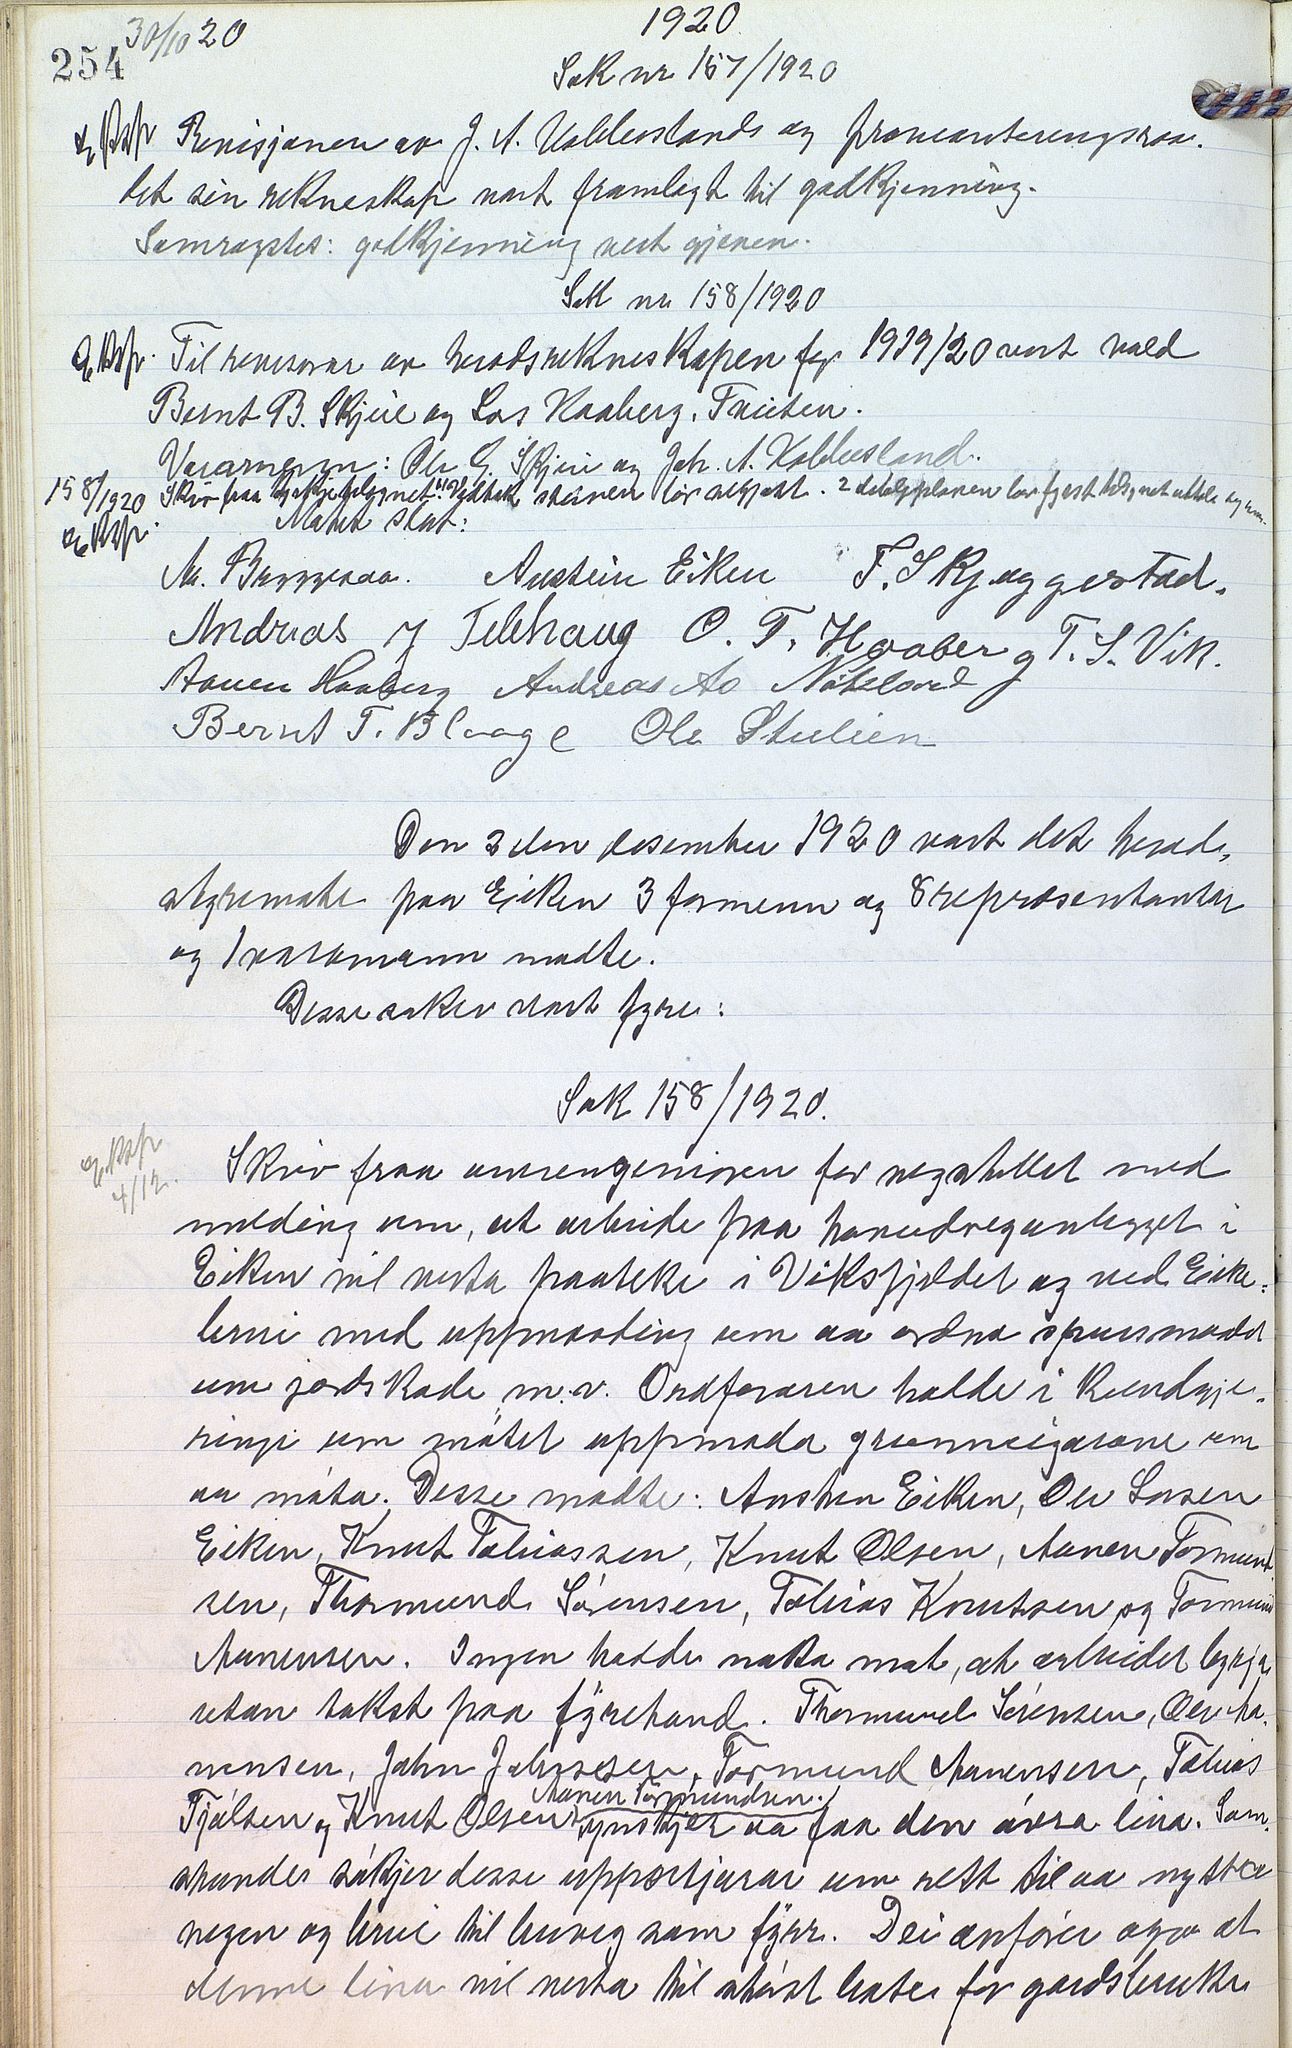 254 30/10 20
1920
Sak nr 157/1920
eksp Revisjonen av J. A. Kollevslands og provianteringsraa-
det sin rekneskap vart framlagt til godkjenning.
Samrøystes: godkjenning vert gjeven.
Sak nr 158/1920
eksp. Til revisorar av heradsrekneskapen for 1919/20 vart vald
Bernt B. Skjeie og Lars Haaberg, Tveiten.
Varamenn: Ole G. Skjeie og Joh. A. Kollevsland.
158/1920 Skriv fraa
eksp. Møtet slut:
M. Bryggesaa. Austein Eiken T. Skjeggestad.
Andreas J Telhaug O. T. Haaberg T. S. Vik.
Aanen Haaberg Andreas Ao Nökland
Bernt T. Blaage Ole Stulien
Den 2den desember 1920 vart det herads-
styremøte paa Eiken 3 formenn og 8 representantar
og 1 varamann møtte.
Desse saker vart fyre:
Sak 158/1920.
eksp 4/12. Skriv fraa avdelingeniøren for vegstellet med
melding um, at arbeide paa hovudveganlegget i
Eiken vil verta paateke i Viksfjeldet og ved Eike-
brui med uppmoding um aa ordna spursmaalet
um jordskade m.v. Ordføraren hadde i kundgje-
ringi um møtet uppmoda grunneigarane um
aa møta. Desse møtte: Austen Eiken, Ole Larsen
Eiken, Knut Tobiassen, Knut Olsen, Aanen Tormund-
sen, Thormund Sørensen, Tobias Knutsen og Tormund
Aanensen. Ingen hadde noko mot, at arbeidet byrja
utan takst paa fyrehand. Thormund Sørensen, Ole Aa-
nensen, John Johnsen, Tormund Aanensen, Tobias
Aanen Tormundsen.
Tjølsen og Knut Olsen ynskjer aa faa den øvra lina. Sam-
stundes søkjer desse uppsitjarar um rett til aa nytta
vegen og brui til buveg som fyrr. Dei anfører ogso at
denne lina vil verta til størst bate for gardsbruke